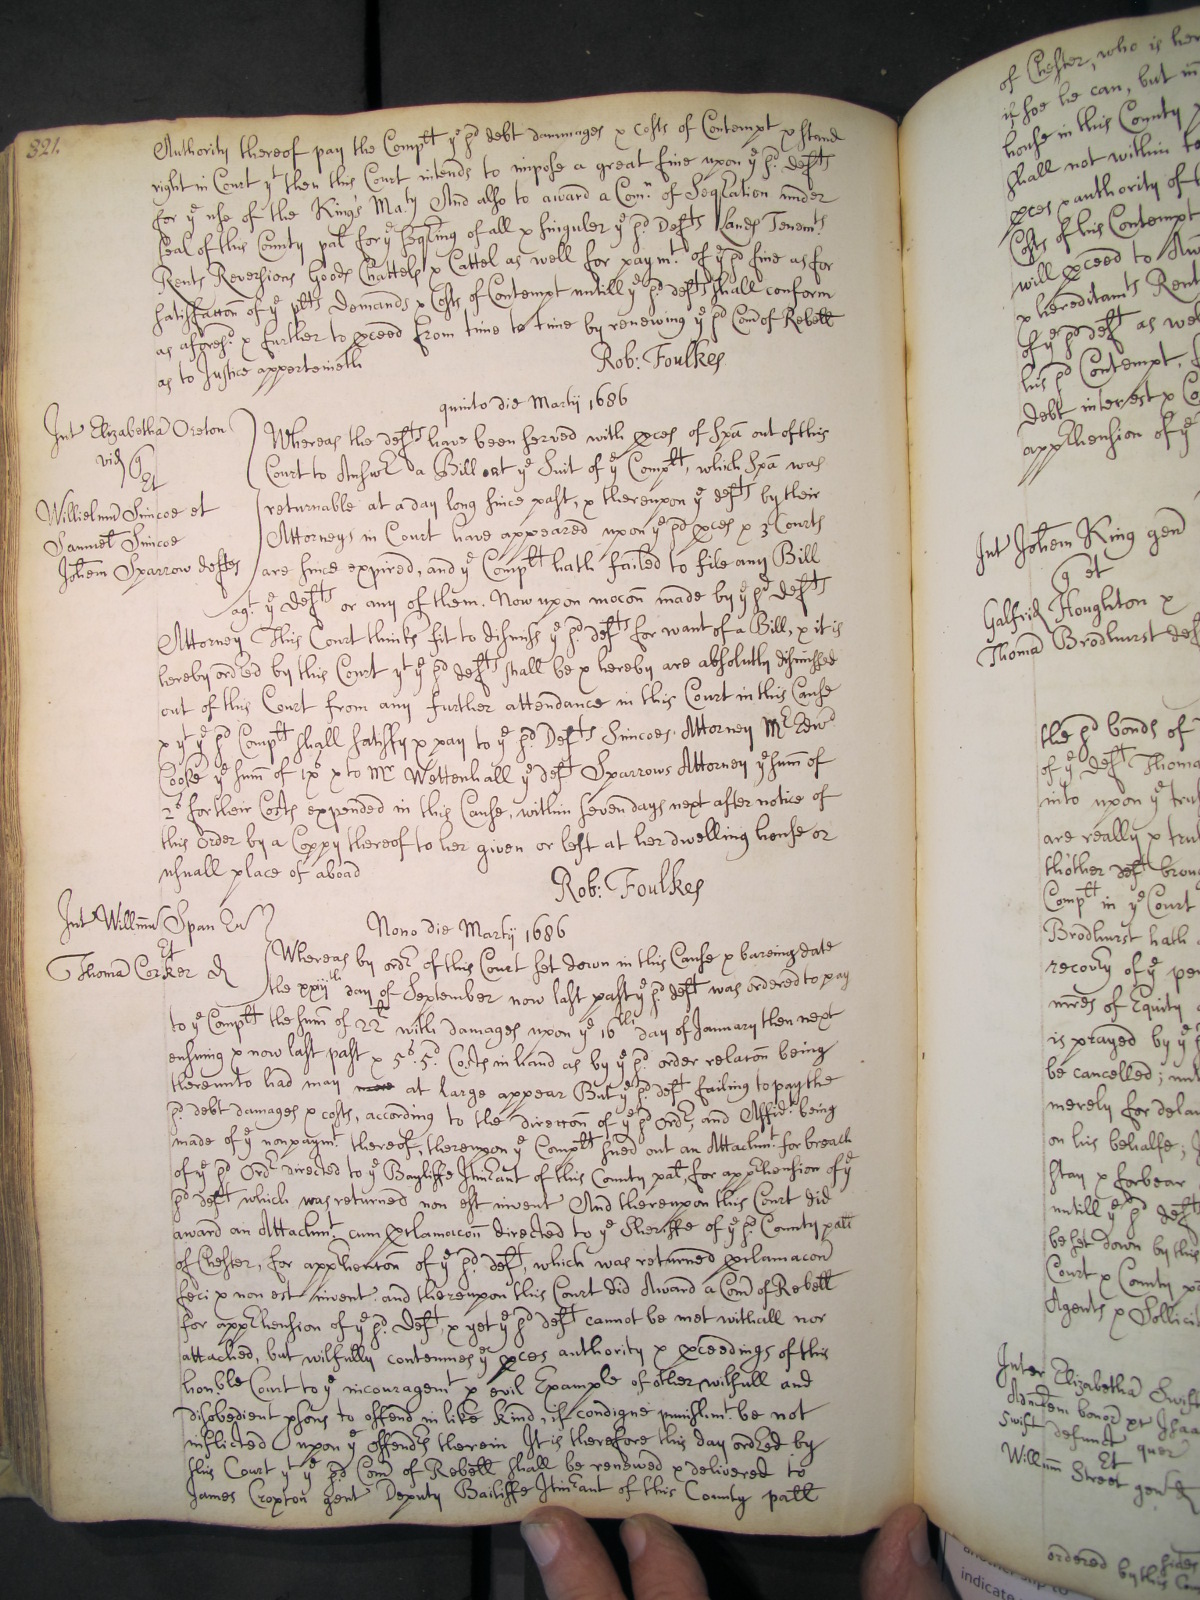 321.
Authority thereof pay the Complt ye sd debt dammages x Costs of Contempt x stand
right in Court yt then this Court intends to impose a great fine upon ye sd. defts
for ye use of the King's Maty And also to award a Comn. of Seqracon under
Seal of this County palt for ye seqring of all x singuler ye sd Defts Lands Tenemts
Rents Reversions Goods Chattels x Cattel as well for paymt. of ye sd fine as for
satisfaccon of ye plts Demands x Costs of Contempt untill ye sd. defts shall conform
as aforesd. x further to pceed from time to time by renewing ye sd Comd of Rebell
as to Justice apperteineth
Rob: Foulkes
quinto die Martij 1686
Int Elizabetha Oreton
vid q
Et
Willielmu Simcoe et
Samuel Simcoe
Johem Sparrow deftes
Whereas the defts have been served with pces of Spa out of this
Court to Answr. a Bill att ye Suit of ye Complt, which Spa was
returnable at a day long since past, x thereupon ye defts by their
Attorneys in Court have appeared upon ye sd pces x 3 Courts
are since expired, and ye Complt hath failed to file any Bill
agt. ye Defts or any of them. Now upon mocon made by ye sd Defts
Attorney This Court thinks fit to dismiss ye sd. defts for want of a Bill, x it is
hereby ordred by this Court yt ye sd defts shall be x hereby are absolutly dismissed
out of this Court from any further attendance in this Court in this Cause
x yt ye sd Complt shall satisfy x pay to ye sd. Defts Simcoes Attorney Mr Edwd
Cooke ye sum of ixs x to Mr Wettenhall ye deft Sparrows Attorney ye sum of
2s for their Costs expended in this Cause, within seven days next after notice of
this order by a Coppy thereof to her given or left at her dwelling house or
usuall place of aboad
Rob: Foulkes
Nono die Martij 1686
Int Willmu Span
Et
Thoma Corker d
Whereas by ordr of this Court set down in this Cause x bareing date
the xxijth day of September now last past ye sd. deft was ordered to pay
to ye Complt the sum of 22l with damages upon ye 16th day of January then next
ensuing x now last past x 5s. 5d. Costs in hand as by ye sd. order relacon being
thereunto had may more at large appear But ye sd. deft failing to pay the
sd. debt damages x costs, according to the direccon of ye sd Ordr, and Affidt. being
made of ye nonpaymt thereof, thereupon ye Complt sued out an Attachmt. for breach
of ye sd Ordr directed to ye Bayliffe Itinrant of this County palt, for apprhension of ye
sd deft which was returned non est invent And thereupon this Court did
award an Attachmt. cum Prlamacon directed to ye Sheriffe of ye sd. County palt
of Chester, for apprhencon of ye sd. deft, which was returned prclamacon
feci x non est invent. and thereupon this Court did Award a Comd of Rebell
for apprhension of ye sd. Deft, x yet ye sd deft cannot be met withall nor
attached, but wilfully contemnes ye pces authority x pceedings of this
honble Court to ye incouragemt x evil Example of other wilfull and
disobedient psons to offend in like kind, if condigne punishmt. be not
inflicted upon ye offendrs therein It is therefore this day ordred by
this Court yt ye sd Comd of Rebell shall be renewed x delivered to
James Croxton gent Deputy Bailiffe Itinrant of this County palt
of Chester, who is her
if hee he can, but
house in this County
shall not within
pces x authority of
Costs of his Contempt
will pceed to
x hereditamts Rent
of ye sd deft as wel
his sd Contempt,
Debt interest x Co
apprhension of ye
Int Johem King gen
q et
Galfrid Houghton x
Thoma Brodhurst def
the sd bonds of
of ye Deft Thoma
into upon ye
are really x tru
thother deft
Complt in ye Court
Brodhurst hath
recovry of ye pen
of Equity
is prayed by ye
be cancelled;
merely for delay
on his behalfe;
stay x forbear
untill ye sd deft
be set down by this
Court x County
Agents x Sollicit
Inter Elizabetha Swift
Swift defunct quer
Et
Willim Street gen d
ordered by this
indicate